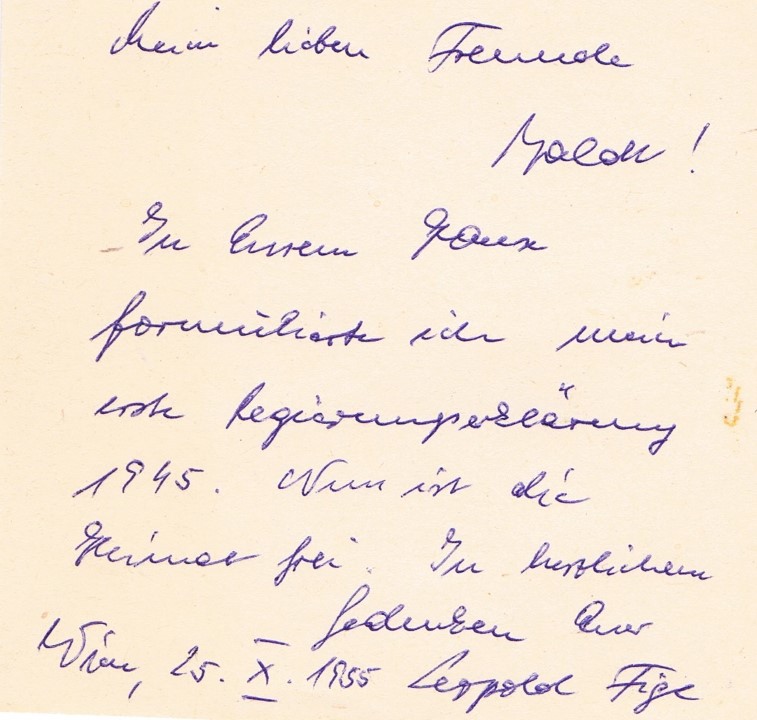 Meine lieben Freunde
Molden!
In Eurem Hause
formulierte ich meine
erste Regierungserklärung
1945. Nun ist die
Heimat frei. In herzlichem
Gedenken Euer
Wien, 25. X. 1955 Leopold Figl